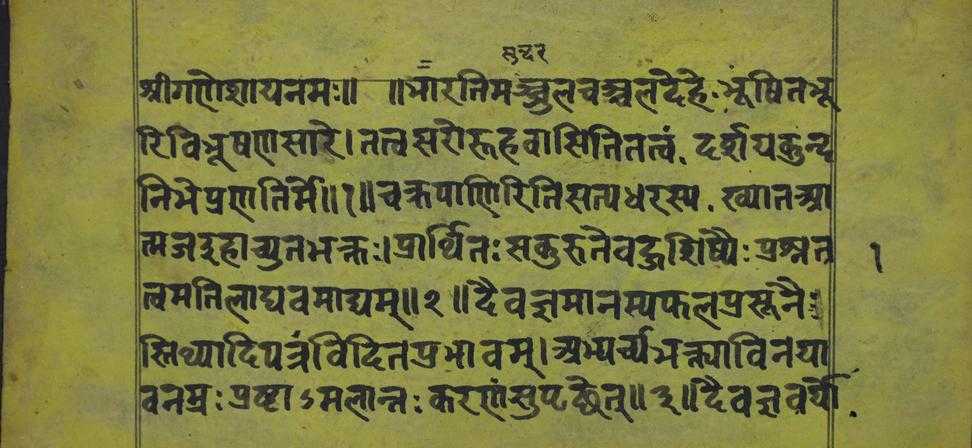 सुन्दर
श्रीगणेशायनमः॥ ॥भारतिमञ्जुलचञ्चलदेहे भूषितभू
रिविभूषणसारे। तत्वसरोरुहवासिनितत्वं दर्शयकुन्द
निभेप्रणतिर्मे॥१॥ चक्रपाणिरितिसत्यधरस्य ख्यातआ
त्मजइहाच्युतभक्तः। प्रार्थितः सकुरुतेवहुशिष्यैः प्रश्नत
त्वमतिलाघवमाद्यम्॥२॥ दैवज्ञमानस्यफलप्रसूनैः
स्तिथ्यादिपत्रंविदितप्रभावम्। अभ्यर्च्यभक्त्याविनया
वनम्रः प्रष्टाऽमलान्तः करणंसुपृच्छेत्॥३॥ दैवज्ञवर्यो
१